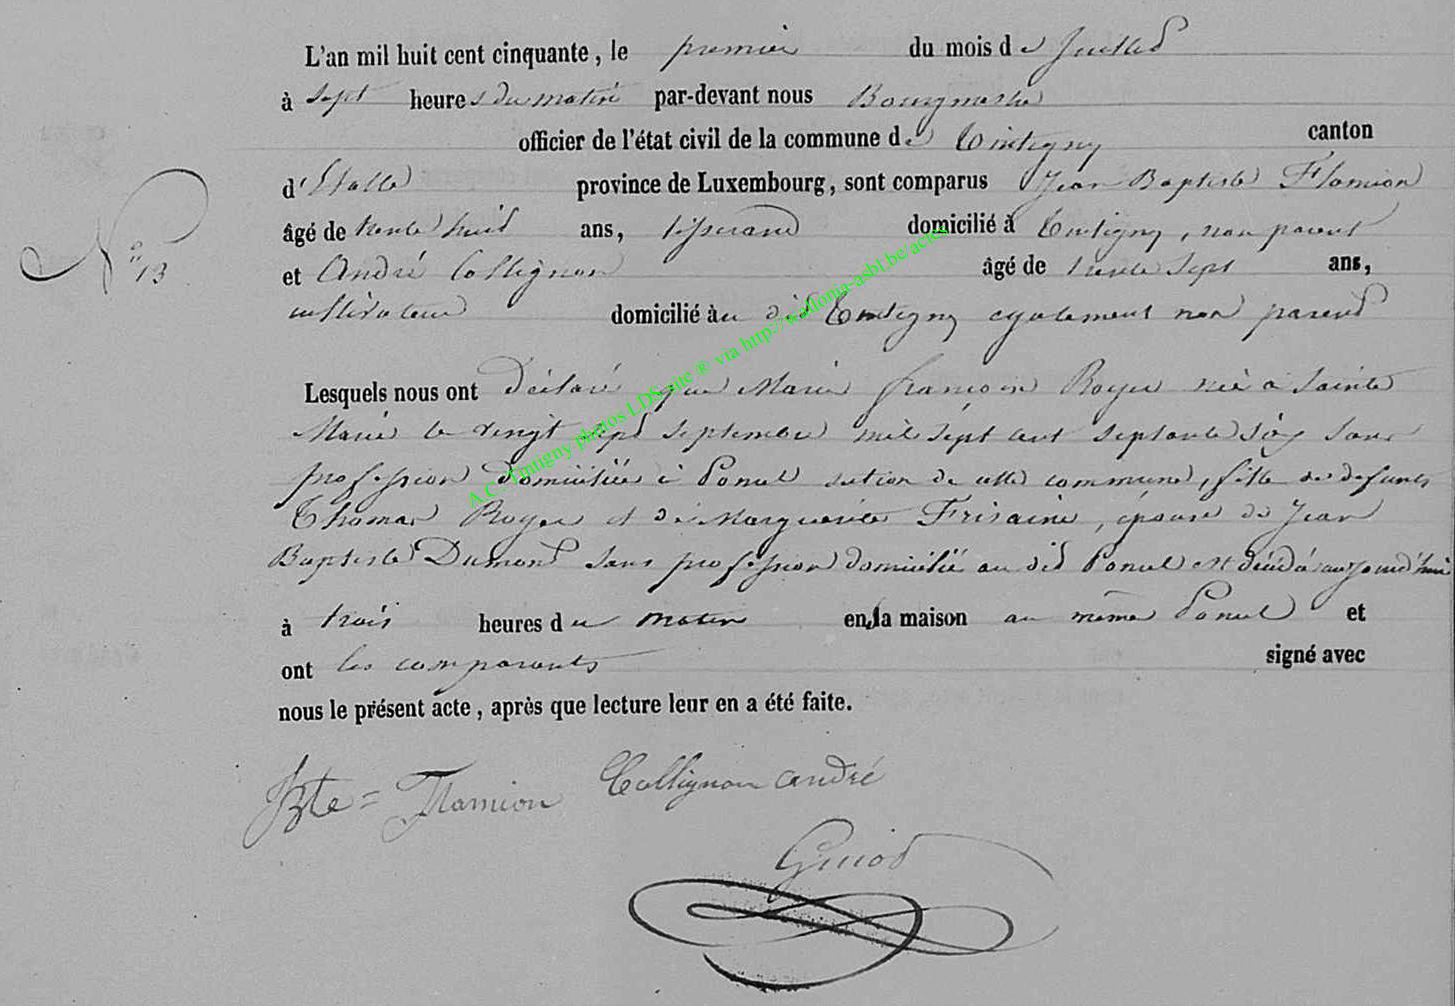 L'an mil huit cent cinquante, le premier du mois de Juillet
à sept heures du matin par-devant nous Bourgmestre
officier de l'état civil de la commune de Tintigny canton
d'Etalle province de Luxembourg, sont comparus Jean Baptiste Flamion
âgé de trente huit ans, tisserand domicilié à Tintigny, non parent
N° 13
et André Collignon âgé de trente sept ans,
cultivateur domicilié au dit Tintigny egalement non parent
Lesquels nous ont déclaré que Marie françoise Royer née à Sainte
Marie le vingt sept septembre mil sept cent septante six sans
profession domiciliée à Poncel section de cette commune, fille des defunts
Thomas Royer et de Marguerite Frisaine, épouse de Jean
Baptiste Dumont sans profession domicilié au dit Poncel est décédé aujourd'hui
à trois heures du matin en la maison au même Poncel et
ont les comparants signé avec
nous le présent acte, après que lecture leur en a été faite.
JBte = Flamion Collignon andré
Guiot
A.C. Tintigny photos LDS site ® via http://wallonia-asbl.be/actes